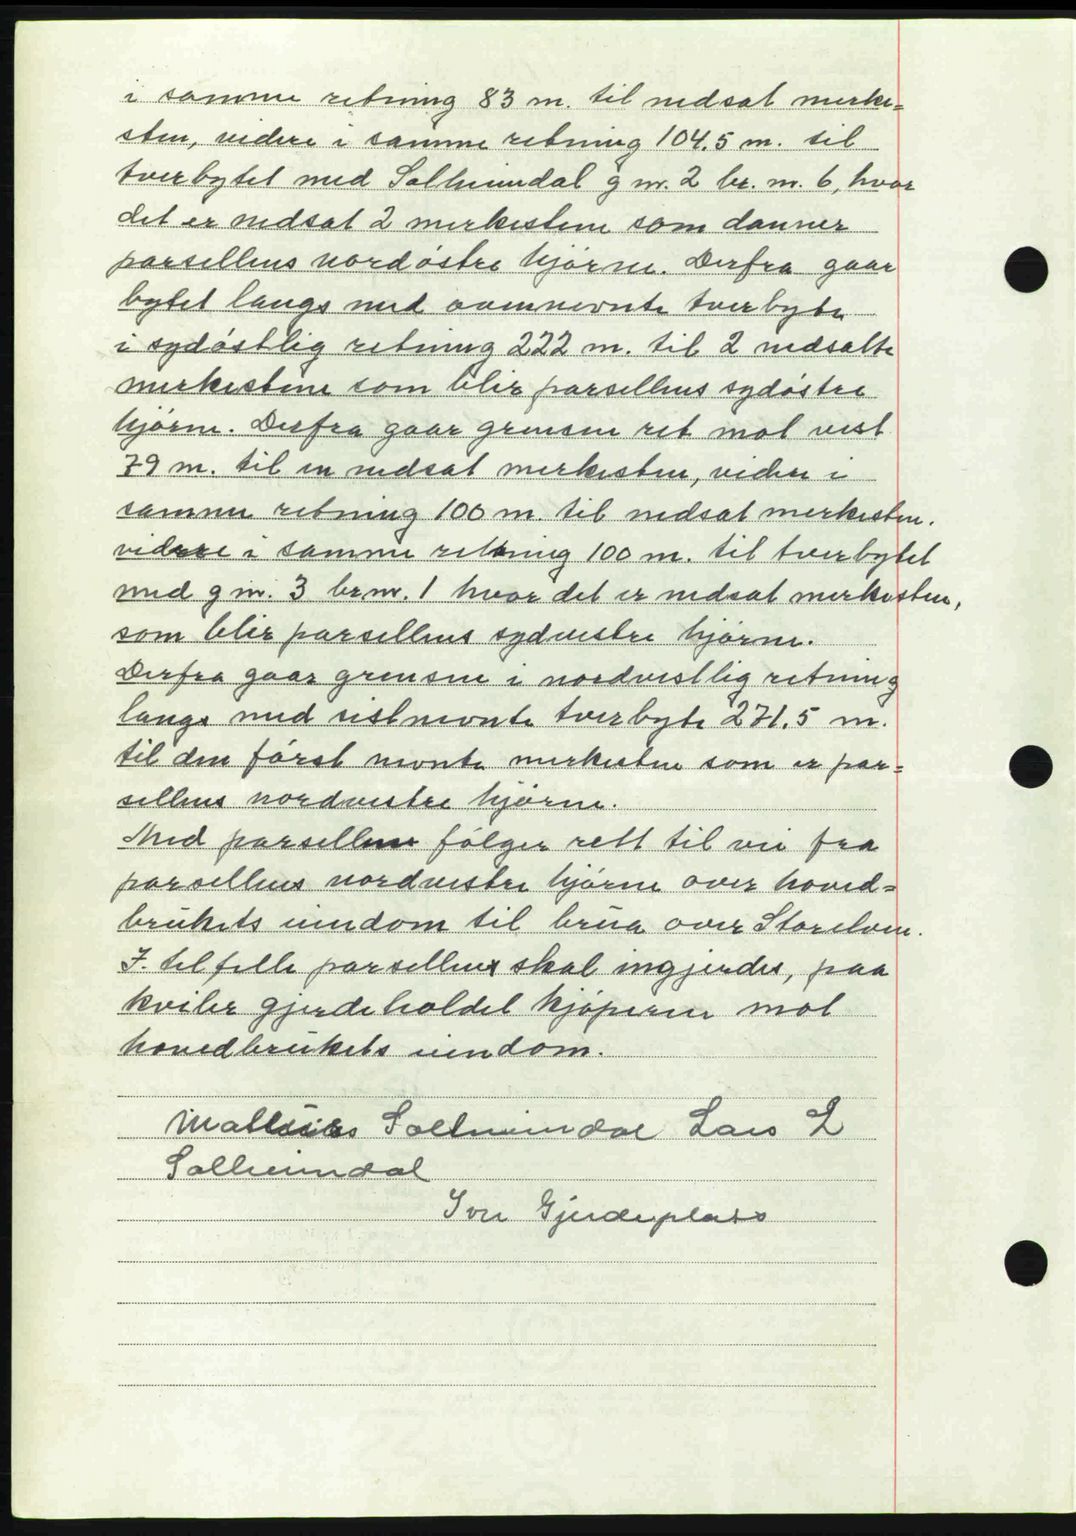 i samme retning 83 m. til nedsat merke=
sten, videre i samme retning 104.5 m. til
tverbytet med Solheimdal g nr. 2 br. nr. 6, hvor
det er nedsat 2 merkestene som danner
parsellens nordøstre hjørne. Derfra gaar
bytet langs med ovennevnte tverbyte
i sydøstlig retning 222 m. til 2 nedsatte
merkestene som blir parsellens sydøstre
hjørne. Derfra gaar grensen ret mot vest
79 m. til en nedsat merkesten, videre i
samme retning 100 m. til nedsat merkesten.
videre i samme retning 100 m. til tverbytet
med g nr. 3 br nr. 1 hvor det er nedsat merkesten,
som blir parsellens sydvestre hjørne.
Derfra gaar grensene i nordvestlig retning
langs med sistnevnte tverbyte 271.5 m.
til den først nevnte merkesten som er par=
sellens nordvestre hjørne.
Med parsellen følger rett til vei fra
parsellens nordvestre hjørne over hoved=
brukets eiendom til brua over Storelven.
I. tilfelle parsellen skal ingjerdes, paa
kviler gjerdeholdet kjøperen mot
hovedbrukets eiendom.
Matius Solheimdal Lars L
Solheimdal
Iver Gjerdeplass